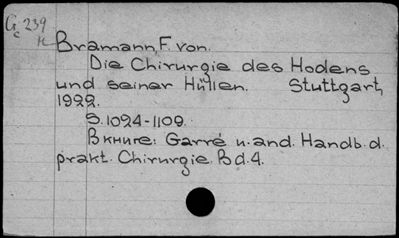 G 239
c
Bramann, F. von.
Die Chirurgie des Hodens
und seiner Hüllen. Stuttgart,
1922.
S. 1094-1109.
В книге: Garré u. and. Handb. d.
prakt. Chirurgie. Bd. 4.